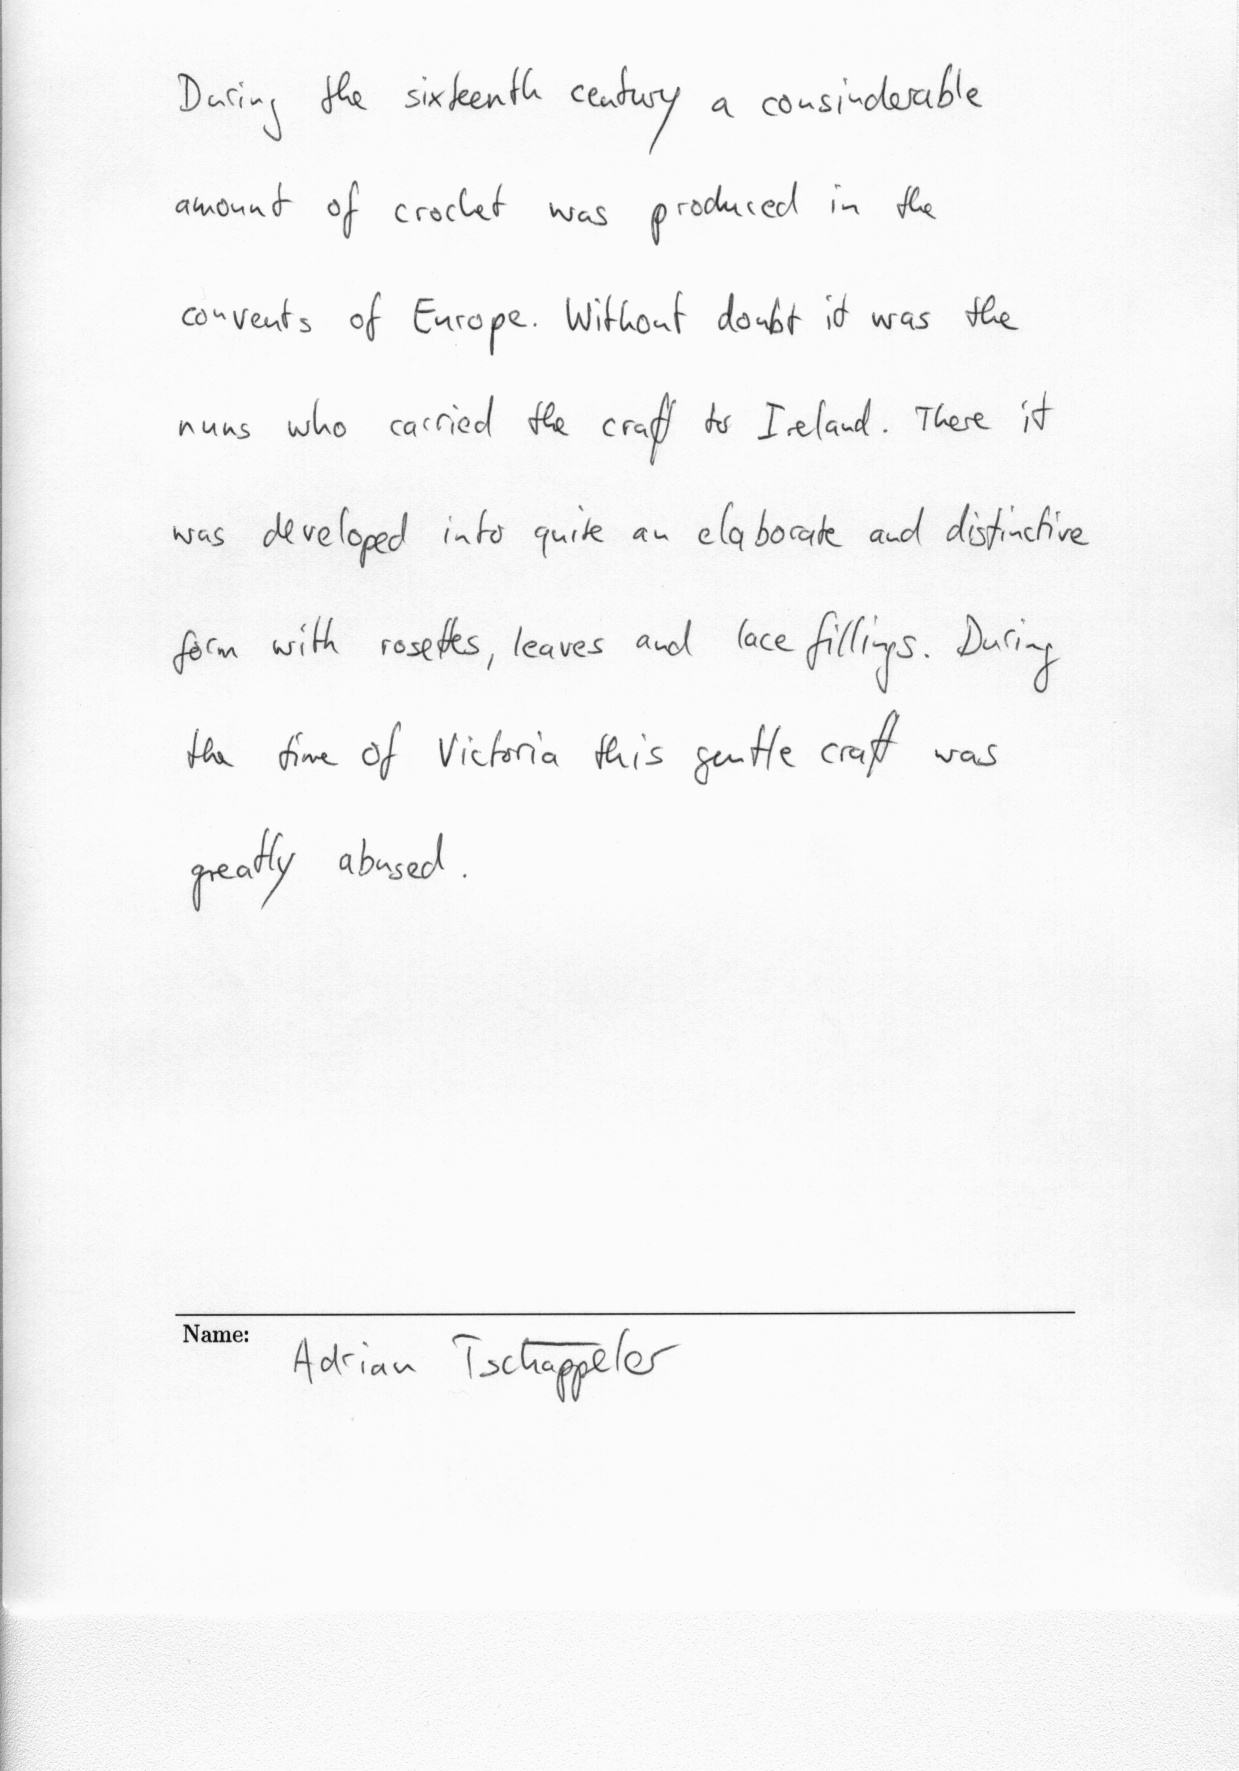 During the sixteenth century a consinderable
amount of crochet was produced in the
convents of Europe. Without doubt it was the
nuns who carried the craft to Ireland. There it
was developed into quite an elaborate and distinctive
form with rosettes, leaves and lace fillings. During
the time of Victoria this gentle craft was
greatly abused.
Name: Adrian Tschappeler